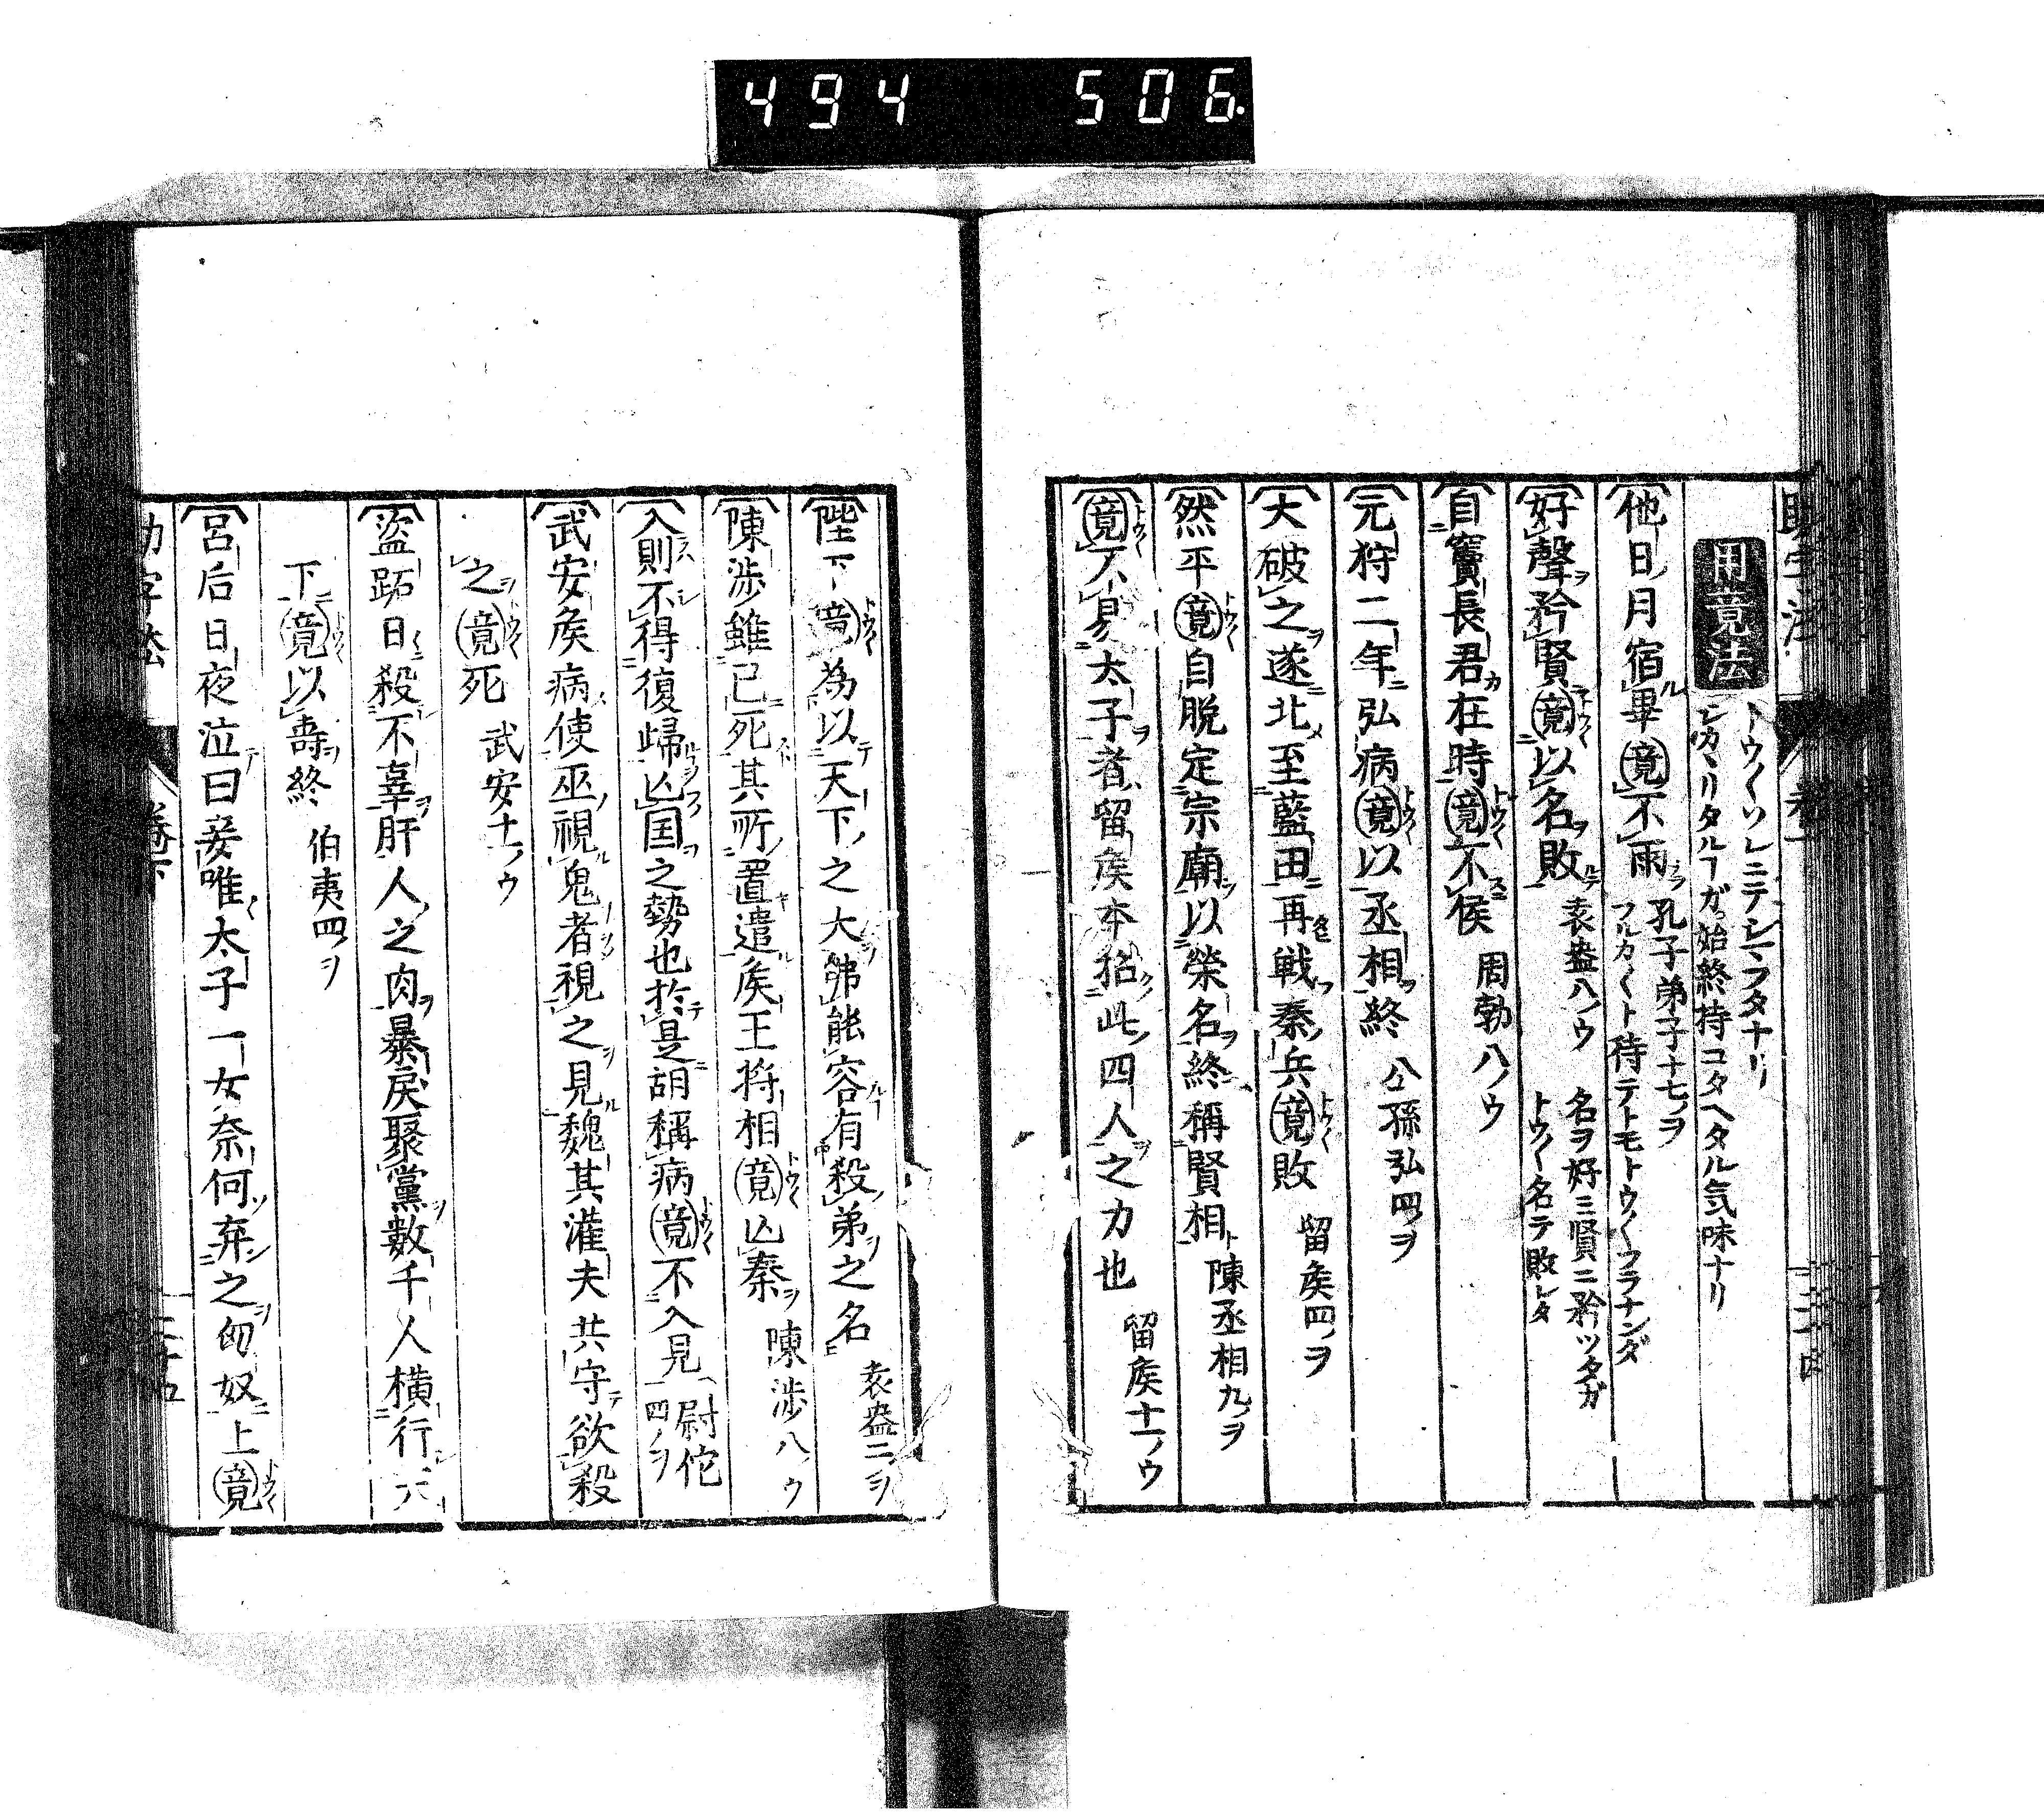 494 506.
用竟法 トウ〱ソレニテシマフタナリ
シカヽリタルヿガ始終持コタヘタル気味ナリ
他日月宿畢竟不雨 孔子弟子十七ノヲ
フルカ〱ト待テトモトウ〱フラナンダ
好聲矜賢竟以名敗 袁盎八ノウ 名ヲ好ミ賢ニ矜ツタガ
トウ〱名テ敗レタ
自竇長君在時竟不侯 周勃八ノウ
元狩二年弘病竟以丞相終 公孫弘四ノヲ
大破之遂北至藍田再戦秦兵竟敗 留矦四ノヲ
然平竟自脱定宗廟以榮名終稱賢相 陳丞相九ノヲ
竟不易太子者留矦本招此四人之力也 留矦十一ノウ
陛下竟為以天下之大弗能容有殺弟之名 袁盎二ノヲ
陳渉雖已死其所置遣矦王将相竟亡秦 陳渉八ノウ
入則不得復歸亡国之勢也於是胡稱病竟不入見 尉佗
四ノヲ
武安矦病使巫視鬼者視之見魏其灌夫共守欲殺
之竟死 武安十一ノウ
盗跖日殺不辜肝人之肉暴戻聚黨數千人横行天
下竟以壽終 伯夷四ノヲ
呂后日夜泣曰妾唯太子一女奈何弃之匈奴上竟